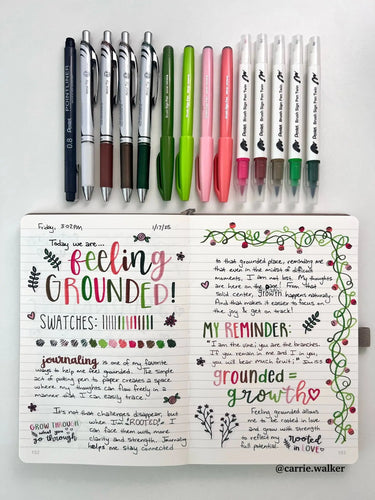 POINTLINER
Pentel
0.8
Pentel Brush Sign Pen Twin
Pentel Brush Sign Pen Twin
Pentel Brush Sign Pen Twin
Pentel Brush Sign Pen Twin
Pentel Brush Sign Pen Twin
Friday, 3:02 PM
1/17/25
Today we are...
feeling
GROUNDED!
SWATCHES:
journaling is one of my favorite
ways to help me feel grounded. The simple
act of putting pen to paper creates a space
where my thoughts can flow freely in a
manner that I can easily trace.
It's not that challenges disappear, but
when I'm "ROOTED" I
can face them with more
clarity and strength. Journaling
helps me stay connected
GROW THROUGH
what you
go through
to that grounded place, reminding me
that even in the midst of difficult
moments, I am not lost. My thoughts
are here on the page! From that
solid center, growth happens naturally.
And that makes it easier to focus on
the joy & get on track!
MY REMINDER:
"I am the vine; you are the branches.
If you remain in me and I in you,
you will bear much fruit;" Jn 15:5
grounded =
growth
Feeling grounded allows
me to be rooted in love
and grow with strength
to reflect my
full potential.
rooted
in LOVE
@carrie.walker